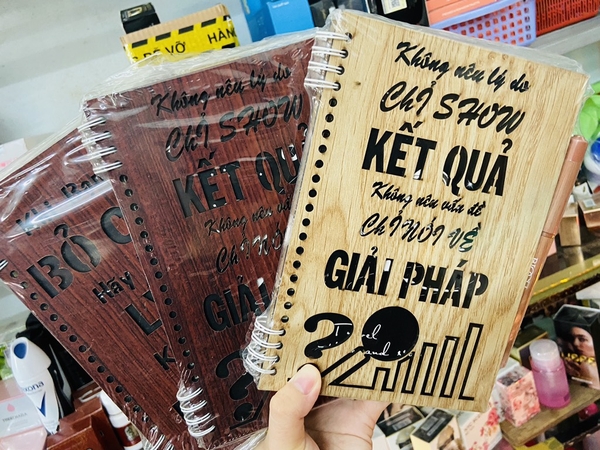 Không nêu lý do
Chỉ SHOW
KẾT QUẢ
Không nêu vấn đề
Chỉ NÓI VỀ
GIẢI PHÁP
Không nêu lý do
Chỉ SHOW
KẾT QUẢ
Không nêu vấn
Chỉ NÓI
GIẢI
BỎ C
Hãy
DỄ VỠ
HÀN